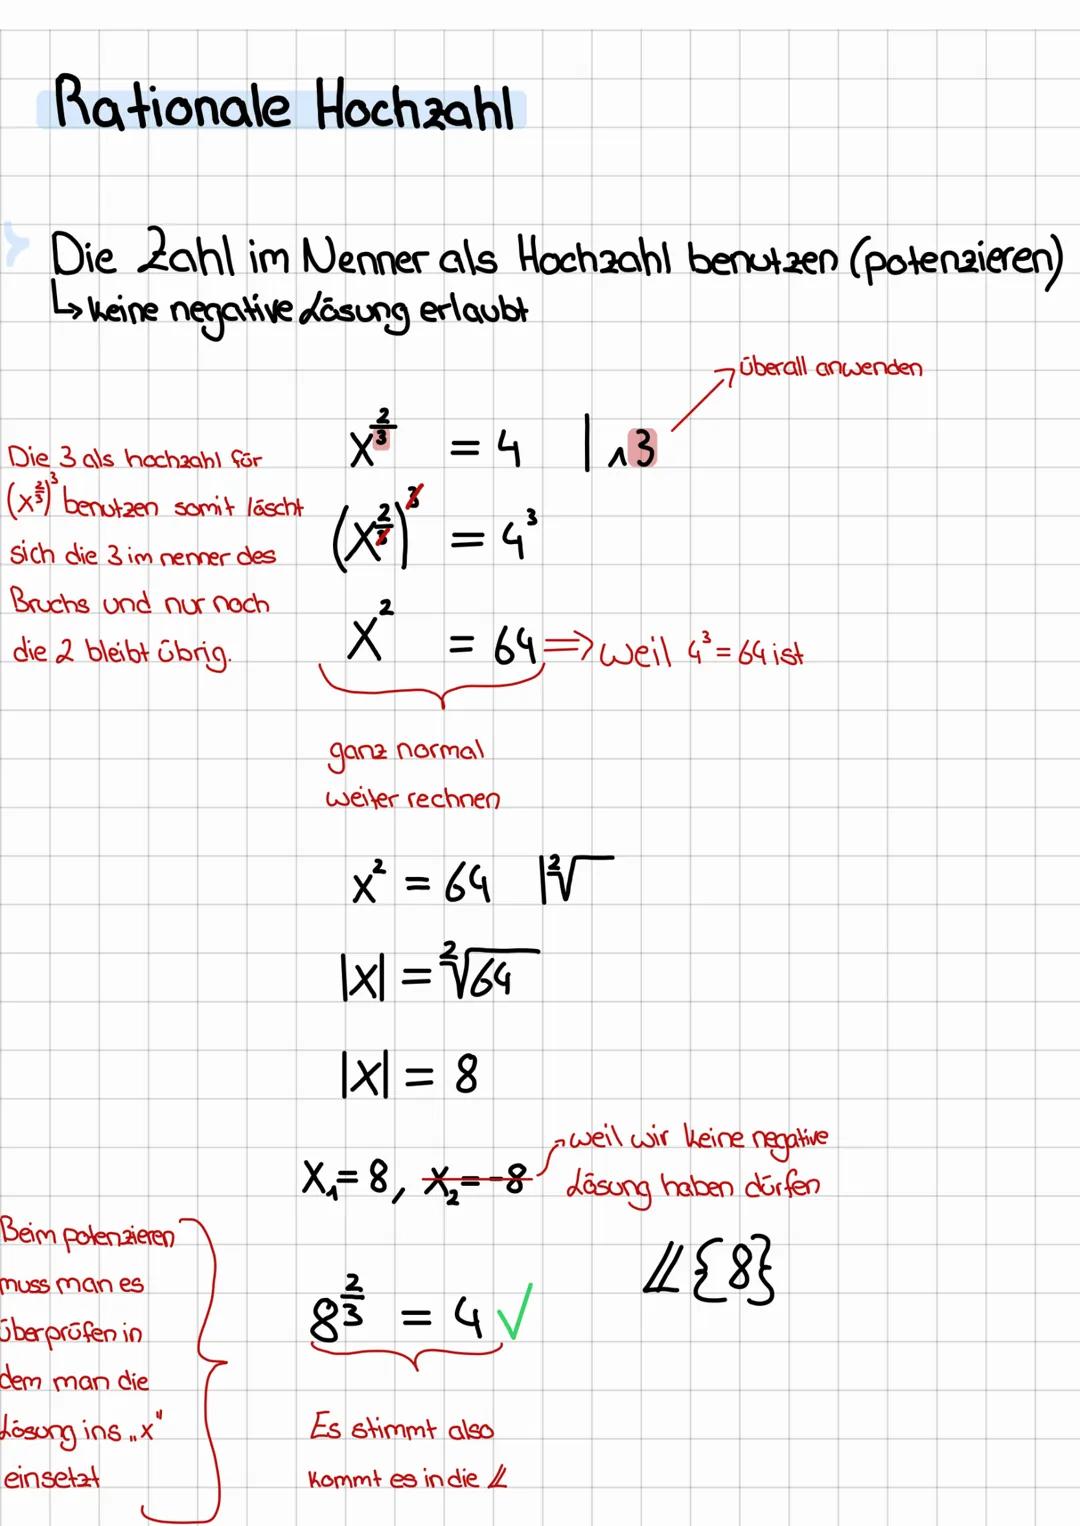 Rationale Hochzahl
Die Zahl im Nenner als Hochzahl benutzen (potenzieren)
↳ keine negative Lösung erlaubt
überall anwenden
x^(2/3) = 4 | ^3
Die 3 als hochzahl für
(x^(2/3))^3 benutzen somit löscht
sich die 3 im nenner des
Bruchs und nur noch
die 2 bleibt übrig.
(x^(2/3))^3 = 4^3
x² = 64 ⇒ weil 4³ = 64 ist
ganz normal
weiter rechnen
x² = 64 | ²√
|x| = ²√64
|x| = 8
x₁ = 8, x₂ = -8
weil wir keine negative
Lösung haben dürfen
𝕃{8}
Beim potenzieren
muss man es
überprüfen in
dem man die
Lösung ins „x"
einsetzt
8^(2/3) = 4 ✓
Es stimmt also
kommt es in die 𝕃